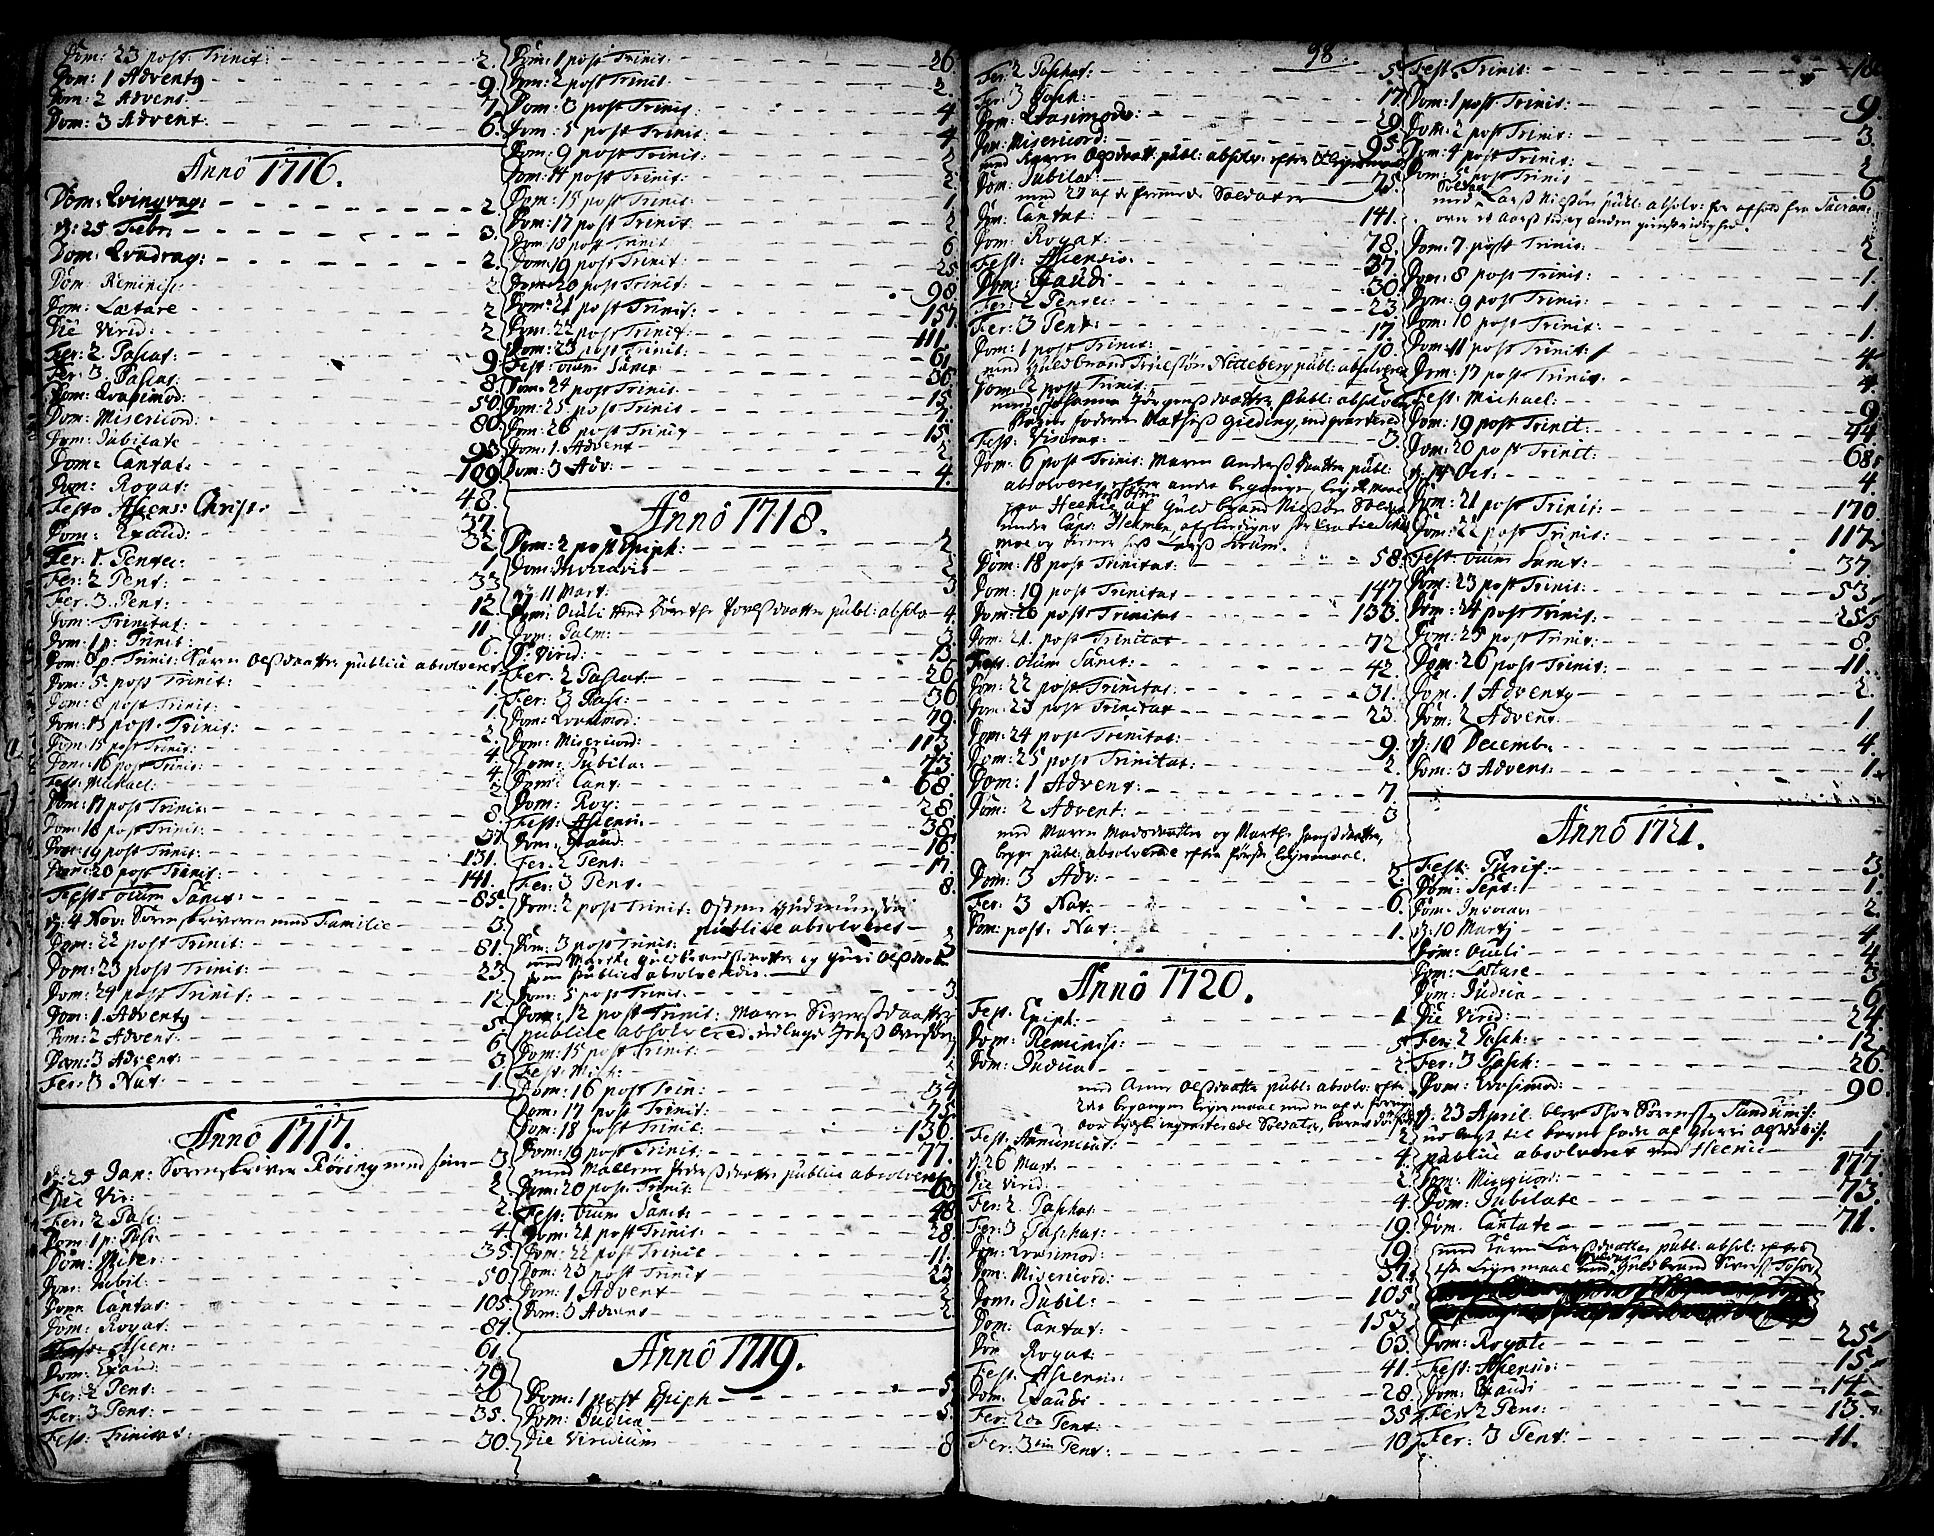 Dom: 23 post Trinit: 2.
Dom: 1 Adventg 9.
Dom: 2 Advent: 7.
Dom: 3 Advent: 6.
Anno 1716.
Dom: Qvinqvag: 2.
d: 25 Febr: 3.
Dom: Qvadrag: 2.
Dom: Reminisc: 2
Dom: Lætare 2
Die Virid: 2.
Fer: 2 Pascat: 9.
Fer: 3 Pascat: 8.
Dom: Qvasimod: 50
Dom: Misericord: 80.
Dom: Jubilate 93.
Dom: Cantat: 109.
Dom: Rogat: 48.
Festo Ascens: Christi 37.
Dom: Exaud: 32.
Fer: 1. Pentec: 1.
Fer: 2 Pent: 33
Fer: 3. Pent: 12.
Dom: Trinitat: 11.
Dom: 1 p: Trinit: 6.
Dom: p: Trinit: Karen Olsdaatter publice absolveret
Dom: 5 post Trinit: 1.
Dom: 8 post Trinit: 1.
Dom: 13 post Trinit: 2.
Dom: 15 post Trinit: 4.
Dom: 16 post Trinit: 4.
Fest: Michael: 2.
Dom: 17 post Trinit: 8.
Dom: 18 post Trinit: 37.
Dom: 19 post Trinit: 131.
Dom: 20 post Trinit: 141.
Fest: Oium Sanct: 85.
d: 4 Nov: Sorenskriveren med Familie 3.
Dom: 22 post Trinit: 81.
Dom: 23 post Trinit: 23
Dom: 24 post Trinit: 12
Dom: 1. Adventg 5
Dom: 2 Advent: 6.
Dom: 3 Advent: 3.
Fer: 3 Nat: 1.
Anno 1717.
d: 25 Jan: Sorenskriver Röring med sin 3.
Die Vir: 2
Fer: 2 Pasc: 2.
Dom: 1 p: Pasc: 4.
Dom: Miser: 35.
Dom: Jubil: 50.
Dom: Cantat: 105.
Dom: Rogat: 84.
Ascen: 61.
Dom: Exaud: 79.
Fer: 2 Pent: 26
Fer: 3 Pent: 35.
Fest: Trinitat 30.
Dom: 1 post Trinit: 26
Dom: 2 post Trinit: 2.
Dom: 3 post Trinit: 4
Dom: 5 post Trinit: 4
Dom: 9 post Trinit: 2.
Dom: 14 post Trinit: 2.
Dom: 15 post Trinit: 1
Dom: 17 post Trinit: 2
Dom: 18 post Trinit: 6.
Dom: 19 post Trinit: 25
Dom: 20 post Trinit: 98.
Dom: 21 post Trinit: 157.
Dom: 22 post Trinit: 111.
Dom: 23 post Trinit: 61
Fest: oium Sanct 36.
Dom: 24 post Trinit: 15.
Dom: 25 post Trinit 7.
Dom: 26 post Trinit 15.
Dom: 1. Advent 2.
Dom: 3 Adv: 4.
Anno 1718.
Dom: 2 post Epiph: 2.
Dom: Invocavit 2
d: 11 Mart: 3
Dom: Oculi publ: absolv 4.
Dom: Palm: 3
D: Virid: 13.
Fer: 2 Pascat: 26
Fer: 3 Pasc: 36
Dom: Qvasimod: 79.
Dom: Misericord: 113.
Dom: Jubila: 73.
Dom: Cant: 68.
Dom: Rog: 28.
Fest: Ascens: 38.
Dom: Exaud: 16
Fer: 2 Pent: 17.
Fer: 3 Pent. 8.
Dom: 2 post Trinit: Osten Gudmunsön
publice absolveret
Dom: 3 post Trinit: 3
med Marthe Guldbrandsdaatter og Guri Olsdaatter
som publice absolverede.
Dom: 5 post Trinit: 3.
Dom: 12 post Trinit: Maren Siversdaatter
publice absolvered:
Dom: 15 post Trinit: 1.
Fest: Mich: 2
Dom: 16 post Trin: 34
Dom: 17 post Trinit: 75.
Dom: 18 post Trinit: 136.
Dom: 19 post Trinit: 77.
med Pedersdaatter publice absolveret
Dom: 20 post Trinit: 65
Fest: Oium Sanct: 48.
Dom: 21 post Trinit: 28.
Dom: 22 post Trinit 11.
Dom: 23 post Trinit 23
Dom: 1 Advent 2
Dom: 3 Advens 2
Anno 1719.
Dom: 1 post Epiph 5.
Dom: Judica 5.
Die Viridium 8
98.
Fer: 2 Paschat: 5
Fer: 3 Pasch: 17.
Dom: Qvasimodo: 29.
Dom: Misericord: 95.
med Karen Olsdaatt: publ: absolv: efter
Dom: Jubilat: 75.
med 27 af de Soldater
Dom: Cantat: 141.
Dom: Rogat: 78.
Fest: Ascensio: 37.
Dom: Exaudi 30.
Fer: 2 Pentec: 23.
Fer: 3 Pent: 17.
Dom: 1 post Trinit: 10.
med Guldbrand Nitteberg publ: absolveret
Dom: 2 post Trinit: 2
med Johanna Jörgensdaatter publ: absolver
Fest: Visitat: 3.
Dom: 6 post Trinit: Maren Andersdaatter publ:
absolveret efter andre
Guldbrand Nielsön Soldat
under Capt:
Dom: 18 post Trinitat: 58.
Dom: 19 post Trinitat 147.
Dom: 20 post Trinitat 133.
Dom: 21. post Trinitat 72
Fest: Oium Sanct: 42.
Dom: 22 post Trinitat: 31.
Dom: 23 post Trinitat 23.
Dom: 24 post Trinitat: 9.
Dom: 25 post Trinitat: 2.
Dom: 1 Advent: 7.
Dom: 2 Advent: 3
med Maren Madsdaatter og Marthe
begge publ: absolverede efter förste leyermaal.
Dom: 3 Adv: 2.
Fer: 3 Nat: 6.
Dom: post: Nat: 1.
Anno 1720.
Fest: Epiph: 1
Dom: Reminisc: 5
Dom: Judica 2
med Anne Olsdaatter publ: absolv: efter
2de begangen leyermaal med en af de
Fest: Annunciat: 2
d: 26 Mart. 4.
Die Virid: 2.
Fer: 2 Paschat: 4.
Fer: 3 Paschat: 19.
Dom: Qvasimod: 19.
Dom: Misericord: 37.
Dom: Jubil: 105.
Dom: Cantat: 153.
Dom Rogat: 63.
Fest: Ascens: 41.
Dom: Exaudi 28.
Fer: 2da Pent: 35.
Fer: 3tia Pent: 10.
Fest: Trinit: 18.
Dom: 1 post Trinit: 9.
Dom: 2 post Trinit: 3.
Dom: 4 post Trinit: 2
Dom: 5 post Trinit 6
Soldat
med Lars Nielsön publ: absolv: for
over et Aars tid og anden
Dom: 7 post Trinit: 2
Dom: 8 post Trinit: 1.
Dom: 9 post Trinit: 1.
Dom: 10 post Trinit: 1.
Dom: 11 post Trinit: 4.
Dom: 17 post Trinit: 4.
Fest: Michael: 9.
Dom: 19 post Trinit: 44.
Dom: 20 post Trinit: 68.
d: 14 Oct: 4.
Dom: 21 post Trinit: 170.
Dom: 22 post Trinit: 117.
Fest: Oium Sanct: 37.
Dom: 23 post Trinit: 53.
Dom: 24 post Trinit: 25.
Dom: 25 post Trinit: 8.
Dom: 26 post Trinit: 11.
Dom: 1 Adventg 2.
Dom: 2 Advent: 1.
d: 10 Decembr: 4.
Dom: 3 Advens: 1.
Anno 1721.
Fest: Purif: 3.
Dom: Sept: 1.
Dom: Invocav: 2.
d: 10 Martj 4.
Dom: Oculi 4.
Dom: Lætare 3
Dom: Judica 6.
Die Virid: 24.
Fer: 2 Pasch: 12.
Fer: 3 Pasch: 26.
Dom: Qvasimod: 90.
d: 23 April. blev Thor Sörenss: Sandsnis:
udlagt til barne fader af Gurri Olsdaat:
publice absolveret med Heenne 1
Dom: Misericord: 177.
Dom: Jubilate 73.
Dom. Cantate 71.
med Karen Larsdaatter publ: absol: efter
1ste Leyermaal med Guldbrand Siverss:
Dom: Rogate 25.
Fest: Ascensio: 15.
Dom: Exaudi 14.
Fer: 2 Pent: 13.
Fer: 3 Pent: 11.